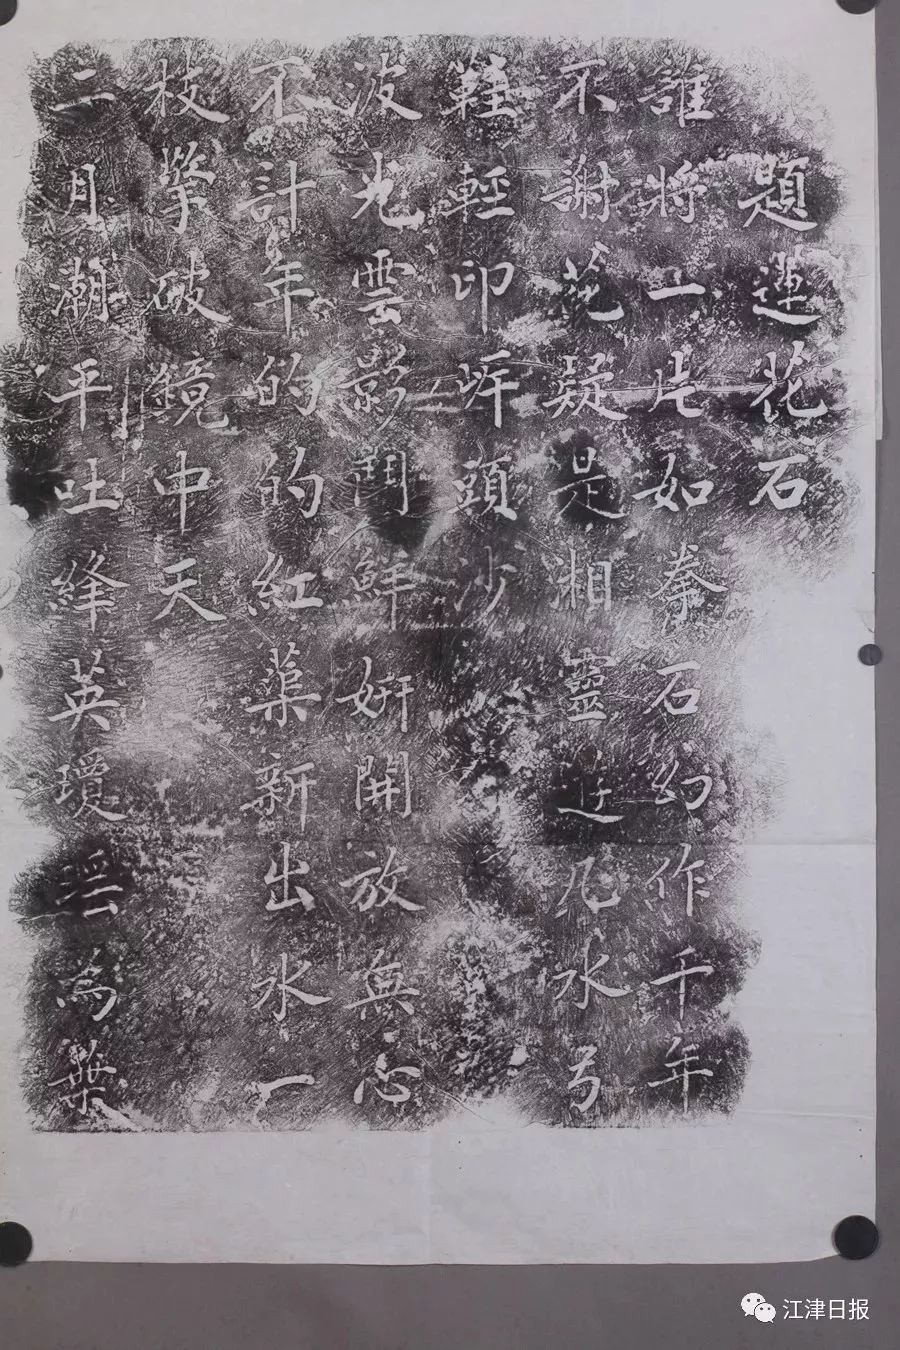 題蓮花石
誰將一片如拳石幻作千年
不謝花疑是湘靈遊凡水弓
鞋輕印岍頭沙
波光雲影鬪鮮妍開放無心
不計年的的紅蕖新出水一
枝擎破鏡中天
二月潮平吐絳英瓊為葉
江津日报